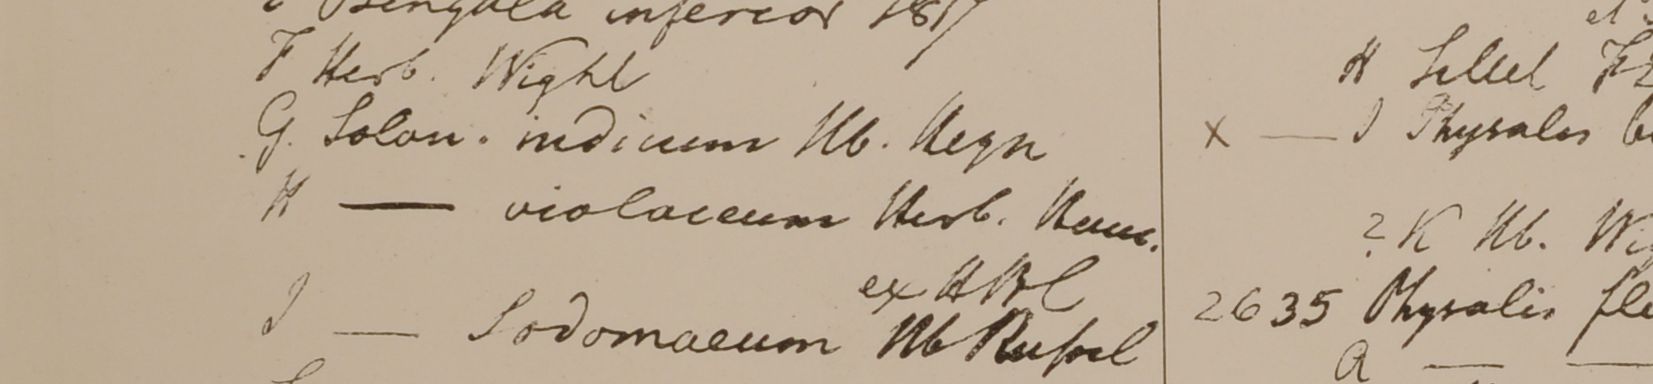 Bengala inferior 1817
F Herb. Wight
G. Solan. indicum Hb. Heyn
H — violaceum Herb. Ham.
ex HBC
I — Sodomaeum Hb Russel
et
H Sillet
x — I Physalis
? K Hb.
2635 Physalis
A — —